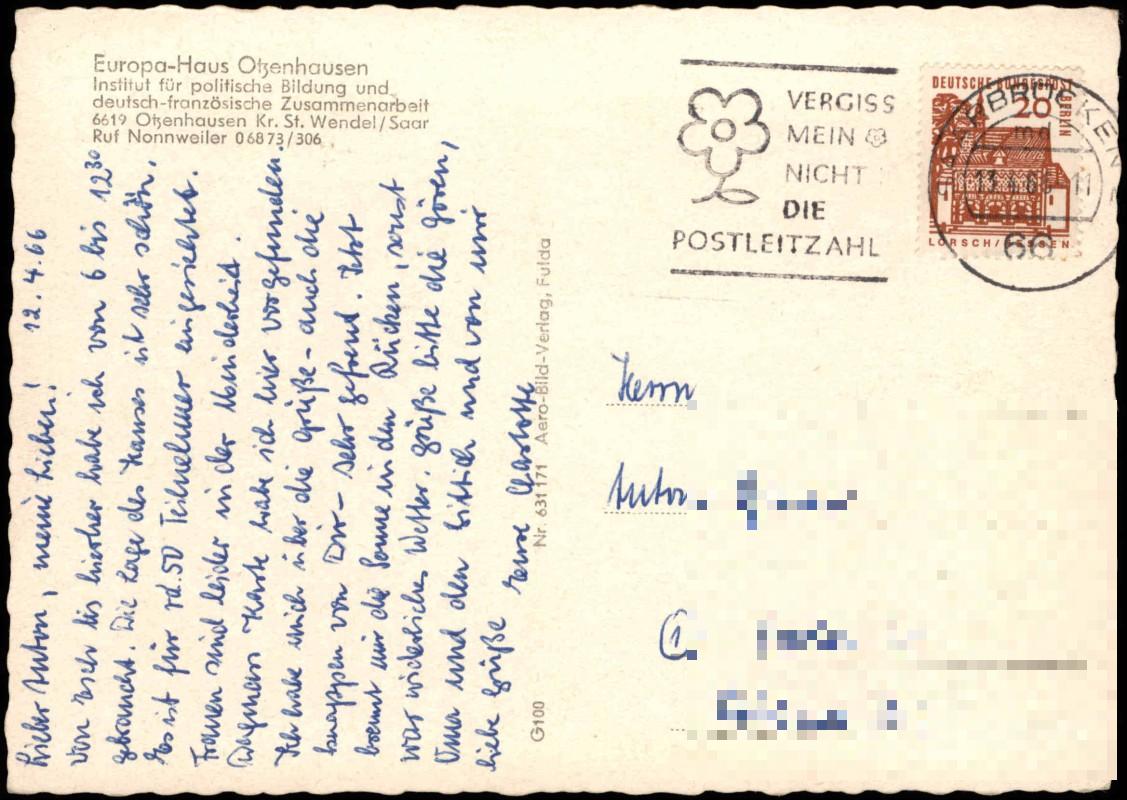 Europa-Haus Otzenhausen
Institut für politische Bildung und
deutsch-französische Zusammenarbeit
6619 Otzenhausen Kr. St. Wendel/Saar
Ruf Nonnweiler 06873/306
VERGISS
MEIN
NICHT
DIE
POSTLEITZAHL
DEUTSCHE BUNDESPOST
BERLIN
20
LORSCH/HESSEN
66
12.4.66
Lieber Anton, meine Lieben!
Von Esch bis hierher habe ich von 6 bis 12³⁰
gebraucht. Die Lage des Hauses ist sehr schön.
Es ist für rd. 50 Teilnehmer eingerichtet.
Frauen sind leider in der Minderheit.
Dagmars Karte habe ich hier vorgefunden.
Ich habe mich über die Grüße - auch die
knappen von Dir - sehr gefreut. Jetzt
brennt mir die Sonne in den Rücken, sonst
war widerliches Wetter. Grüße bitte die Gören,
Oma und den Wittich und von mir
liebe Grüße Eure
Nr. 631171 Aero-Bild-Verlag, Fulda
G100
Herrn
Anton